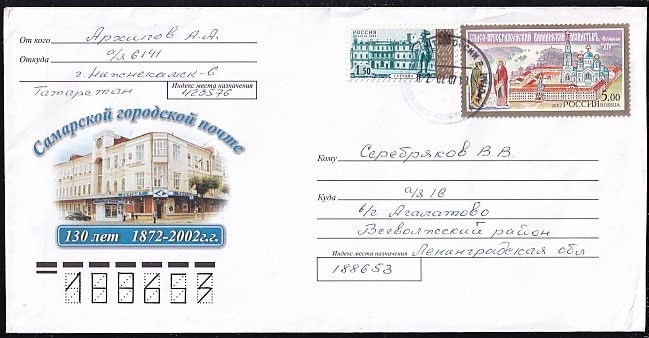 От кого Архипов А.А.
Откуда а/я 6141
г. Нижнекамск-6
Индекс места назначения
Татарстан 423576
РОССИЯ
1.50
СПАСО-ПРЕОБРАЖЕНСКИЙ ВАЛААМСКИЙ МОНАСТЫРЬ.
5.00
РОССИЯ ROSSIA
Самарской городской почте
130 лет 1872-2002г.г.
Кому Серебряков В.В.
Куда а/я 18
в/г Агалатово
Всеволжский район
Индекс места назначения Ленинградская обл
188653
188653